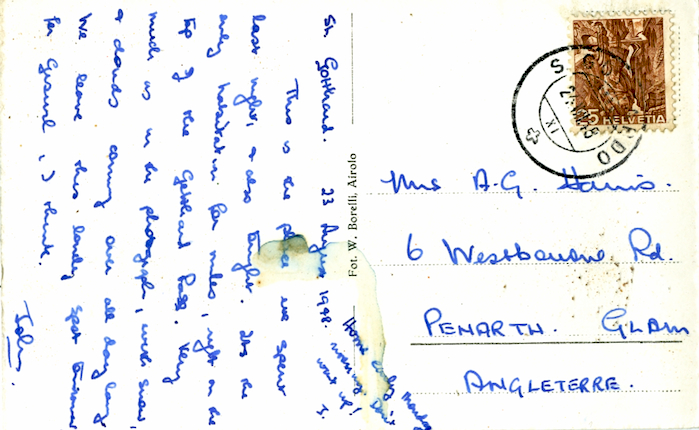 St. Gotthard. 23 August 1948.
This is the place we spent
last night, & also tonight. Its the
only habitation for miles, right on the
top of the Gotthard Pass. Very
much as in the photograph, with snow,
& clouds coming over all day long
We leave this lonely spot tomorrow
for Gisual, I think.
John.
Home early Monday
morning. Don't
wait up!
J.
Fot. W. Borelli, Airolo
HELVETIA
Mrs A.G. Harris.
6 Westbourne Rd.
PENARTH. GLAM
ANGLETERRE.